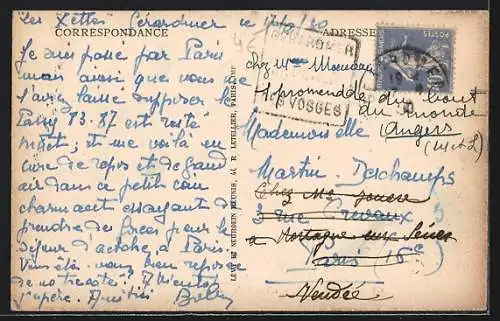 Les Xettes Gérardmer le 17/9/30
CORRESPONDANCE
ADRESSE
Je suis passé par Paris
mais ainsi que vous me
l'aviez laissé supposer le
Passy 13.87 est resté
muet; et me voilà en
cure de repos et de grand
air dans ce petit coin
charmant essayant de
prendre des forces pour le
séjour d'octobre à Paris.
Vous êtes-vous bien reposée
de votre côté? A bientôt
j'espère. Amitiés
LEVY ET NEURDEIN REUNIS, 44, R. LETELLIER, PARIS-IMP
GERARDMER
VOSGES
POSTES
chez Mme
promenade du bout
du monde
Angers
(M et L)
Mademoiselle
Martin Deschamps
Chez Me
3 rue
à Mortagne sur Sèvre
Paris (16e)
Vendée